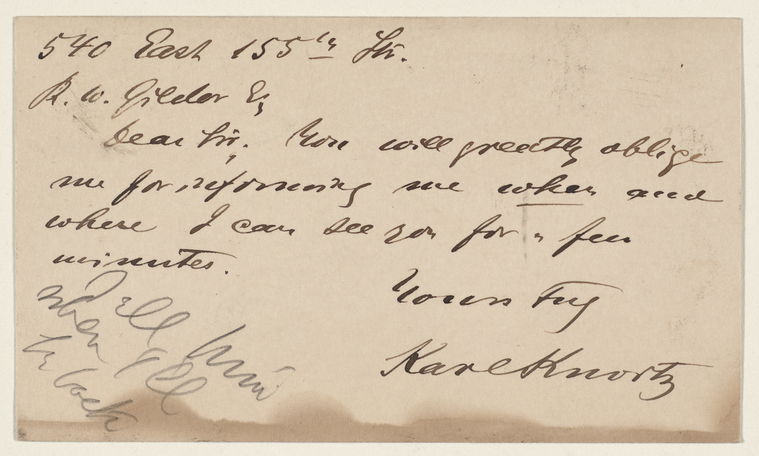 540 East 155th Str.
R. W. Gilder Esq
Dear Sir. You will greatly oblige
me for informing me when and
where I can see you for a few
minutes.
Yours Trly
Karl Knortz
Tell him
when I'll
be back